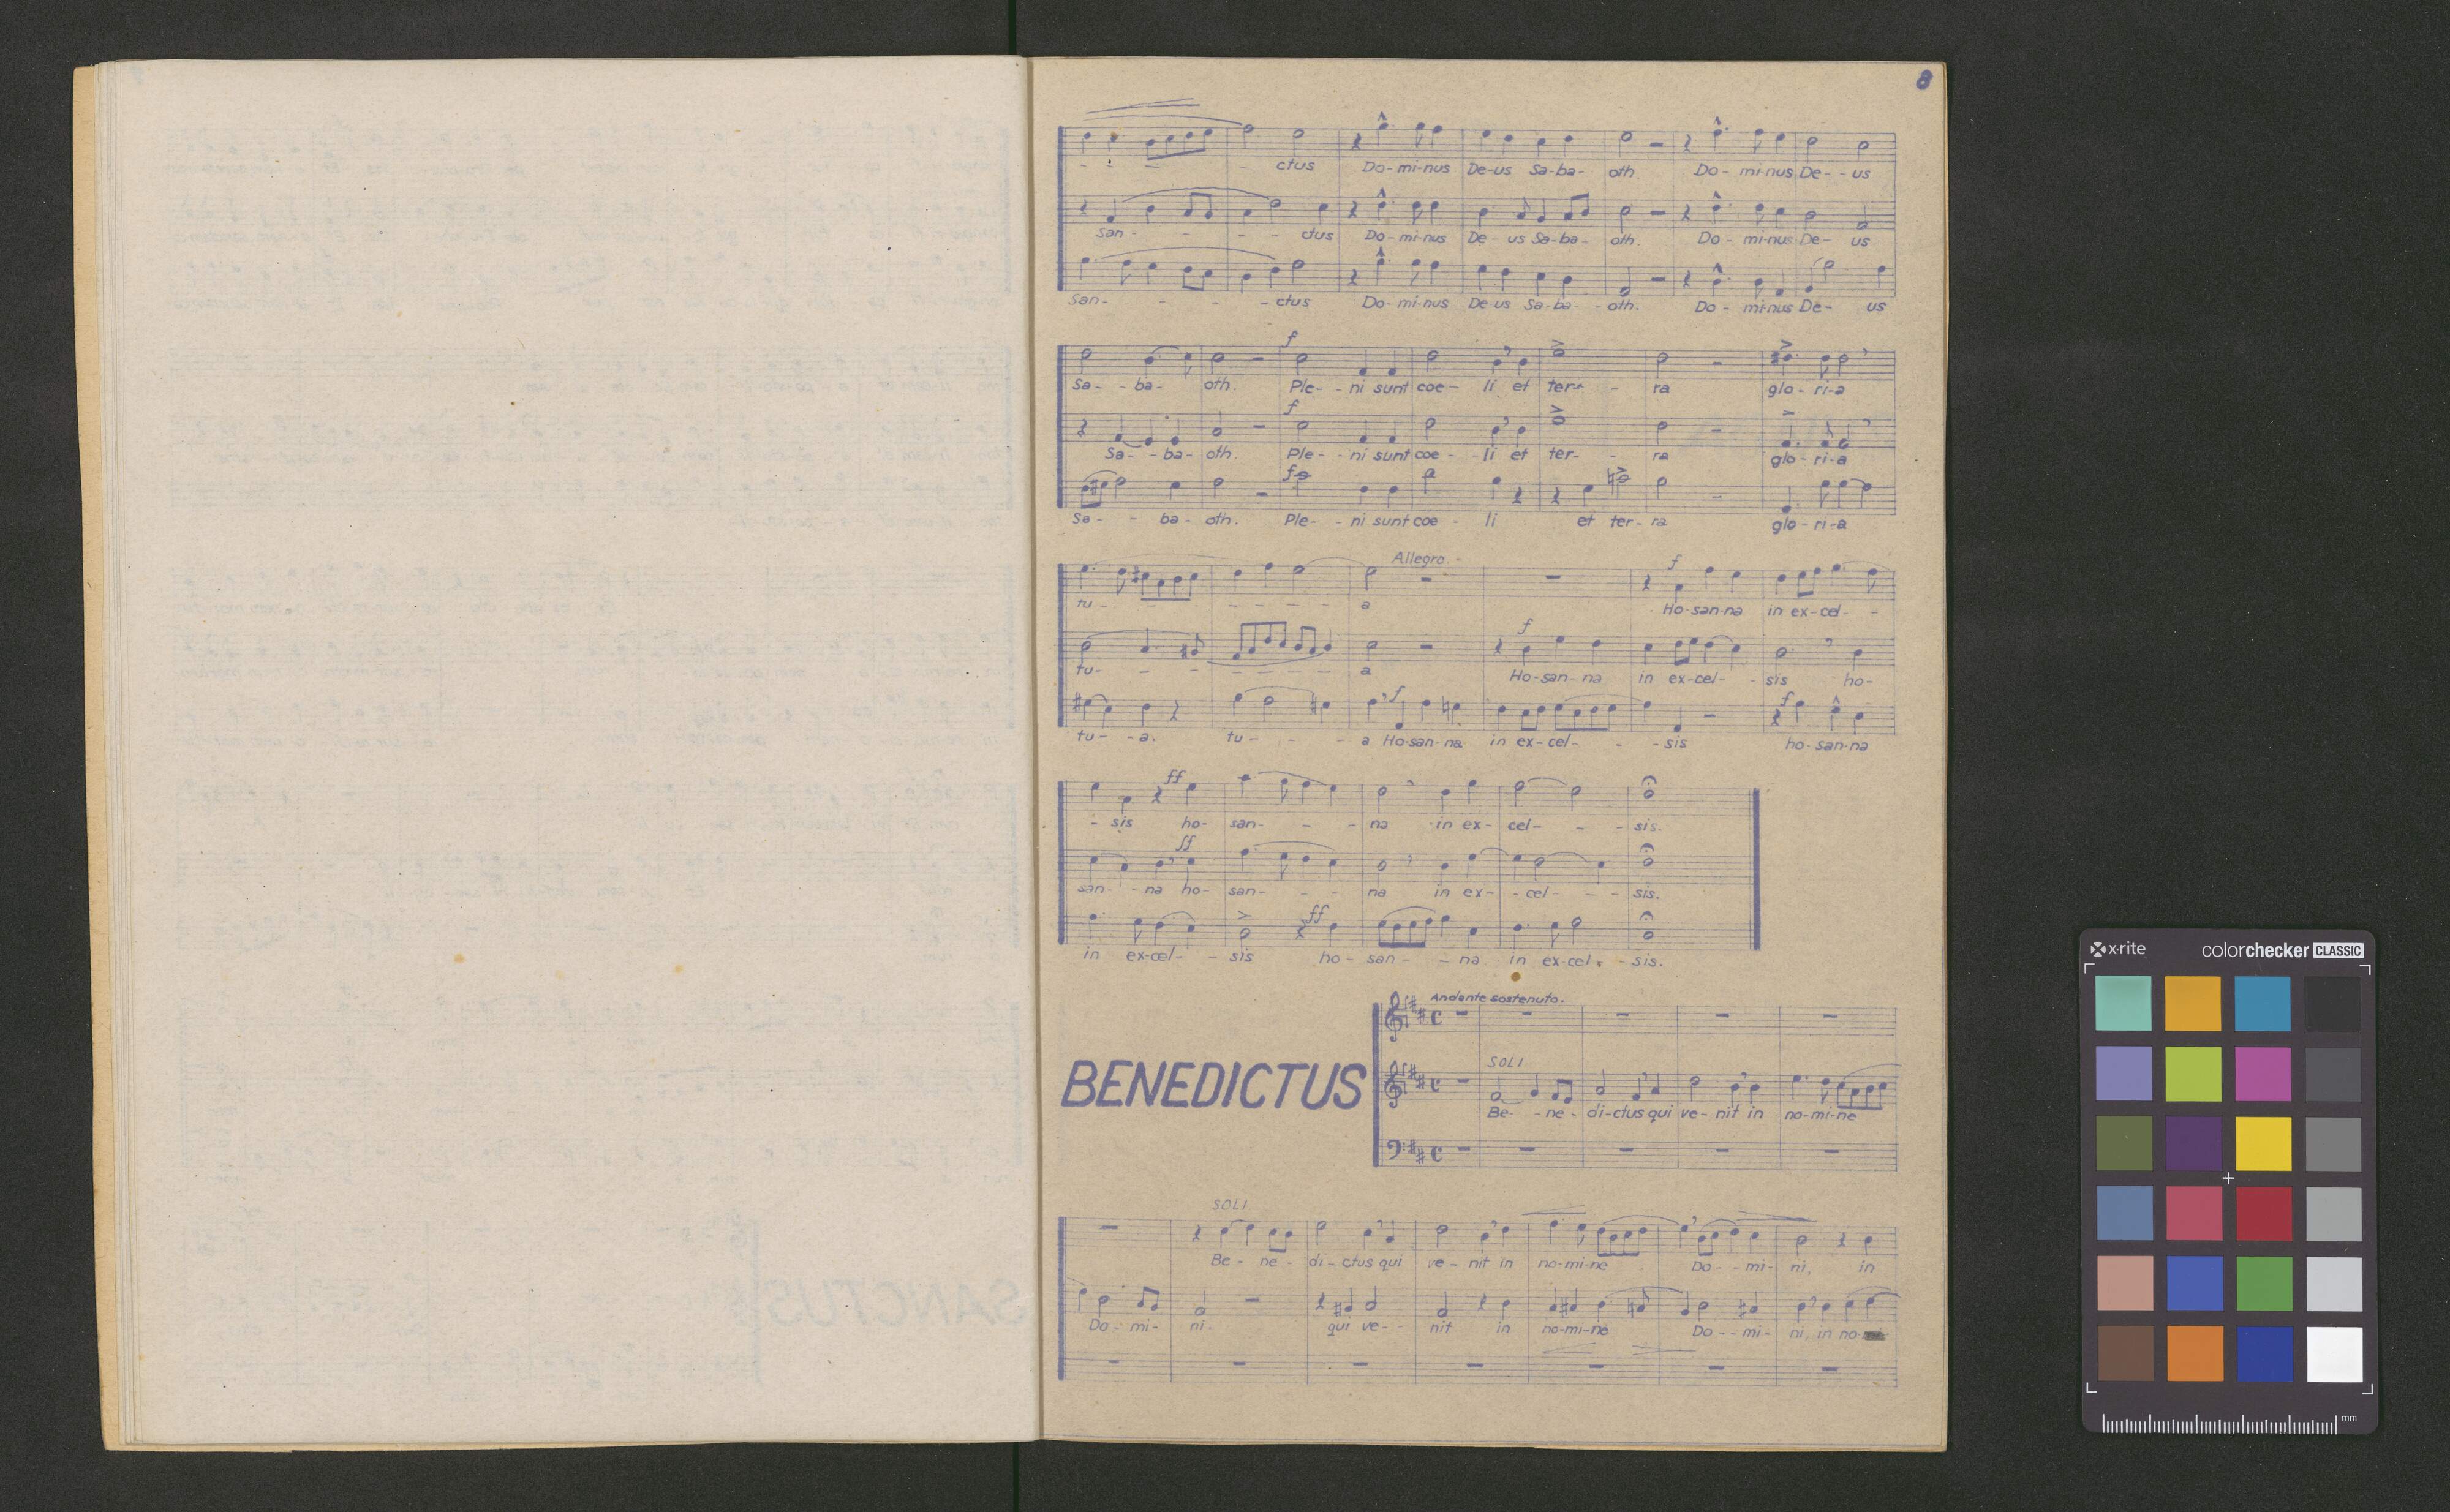 8
- - - ctus Do-mi-nus De-us Sa-ba- oth Do- mi-nus De- - us
San- - - - ctus Do-mi-nus De-us Sa-ba- oth. Do- mi-nus De- us
San- - - - ctus Do-mi-nus De-us Sa-ba - oth. Do- mi-nus De- us
f
Sa- - ba- oth. Ple- - ni sunt coe- li et ter- - ra glo-ri-a
f
Sa- - ba- oth. Ple- - ni sunt coe- - li et ter- - ra glo-ri-a
f
Sa- - ba- oth. Ple- - ni sunt coe - li et ter- ra glo-ri-a
Allegro.
f
tu- - - - - - - a Ho-san-na in ex-cel- -
f
tu- - - - - - - a Ho-san-na in ex-cel- - sis ho-
f f
tu- -a. tu- - - a Ho-san-na in ex-cel- - - sis ho-san-na
ff
- sis ho- san- - - na in ex- cel- - - sis.
ff
san- - na ho- san- - - na in ex- - cel- - - sis.
ff
in ex-cel- - sis ho- san- - na in ex-cel- - sis.
Andante sostenuto.
SOLI
BENEDICTUS
Be- - ne- di-ctus qui ve- nit in no-mi-ne
SOLI
Be- ne- di-ctus qui ve- nit in no-mi-ne Do- - mi- ni, in
Do- mi- ni. qui ve- - nit in no-mi-ne Do- - mi- ni, in no-
SANCTUS
x-rite colorchecker CLASSIC
mm